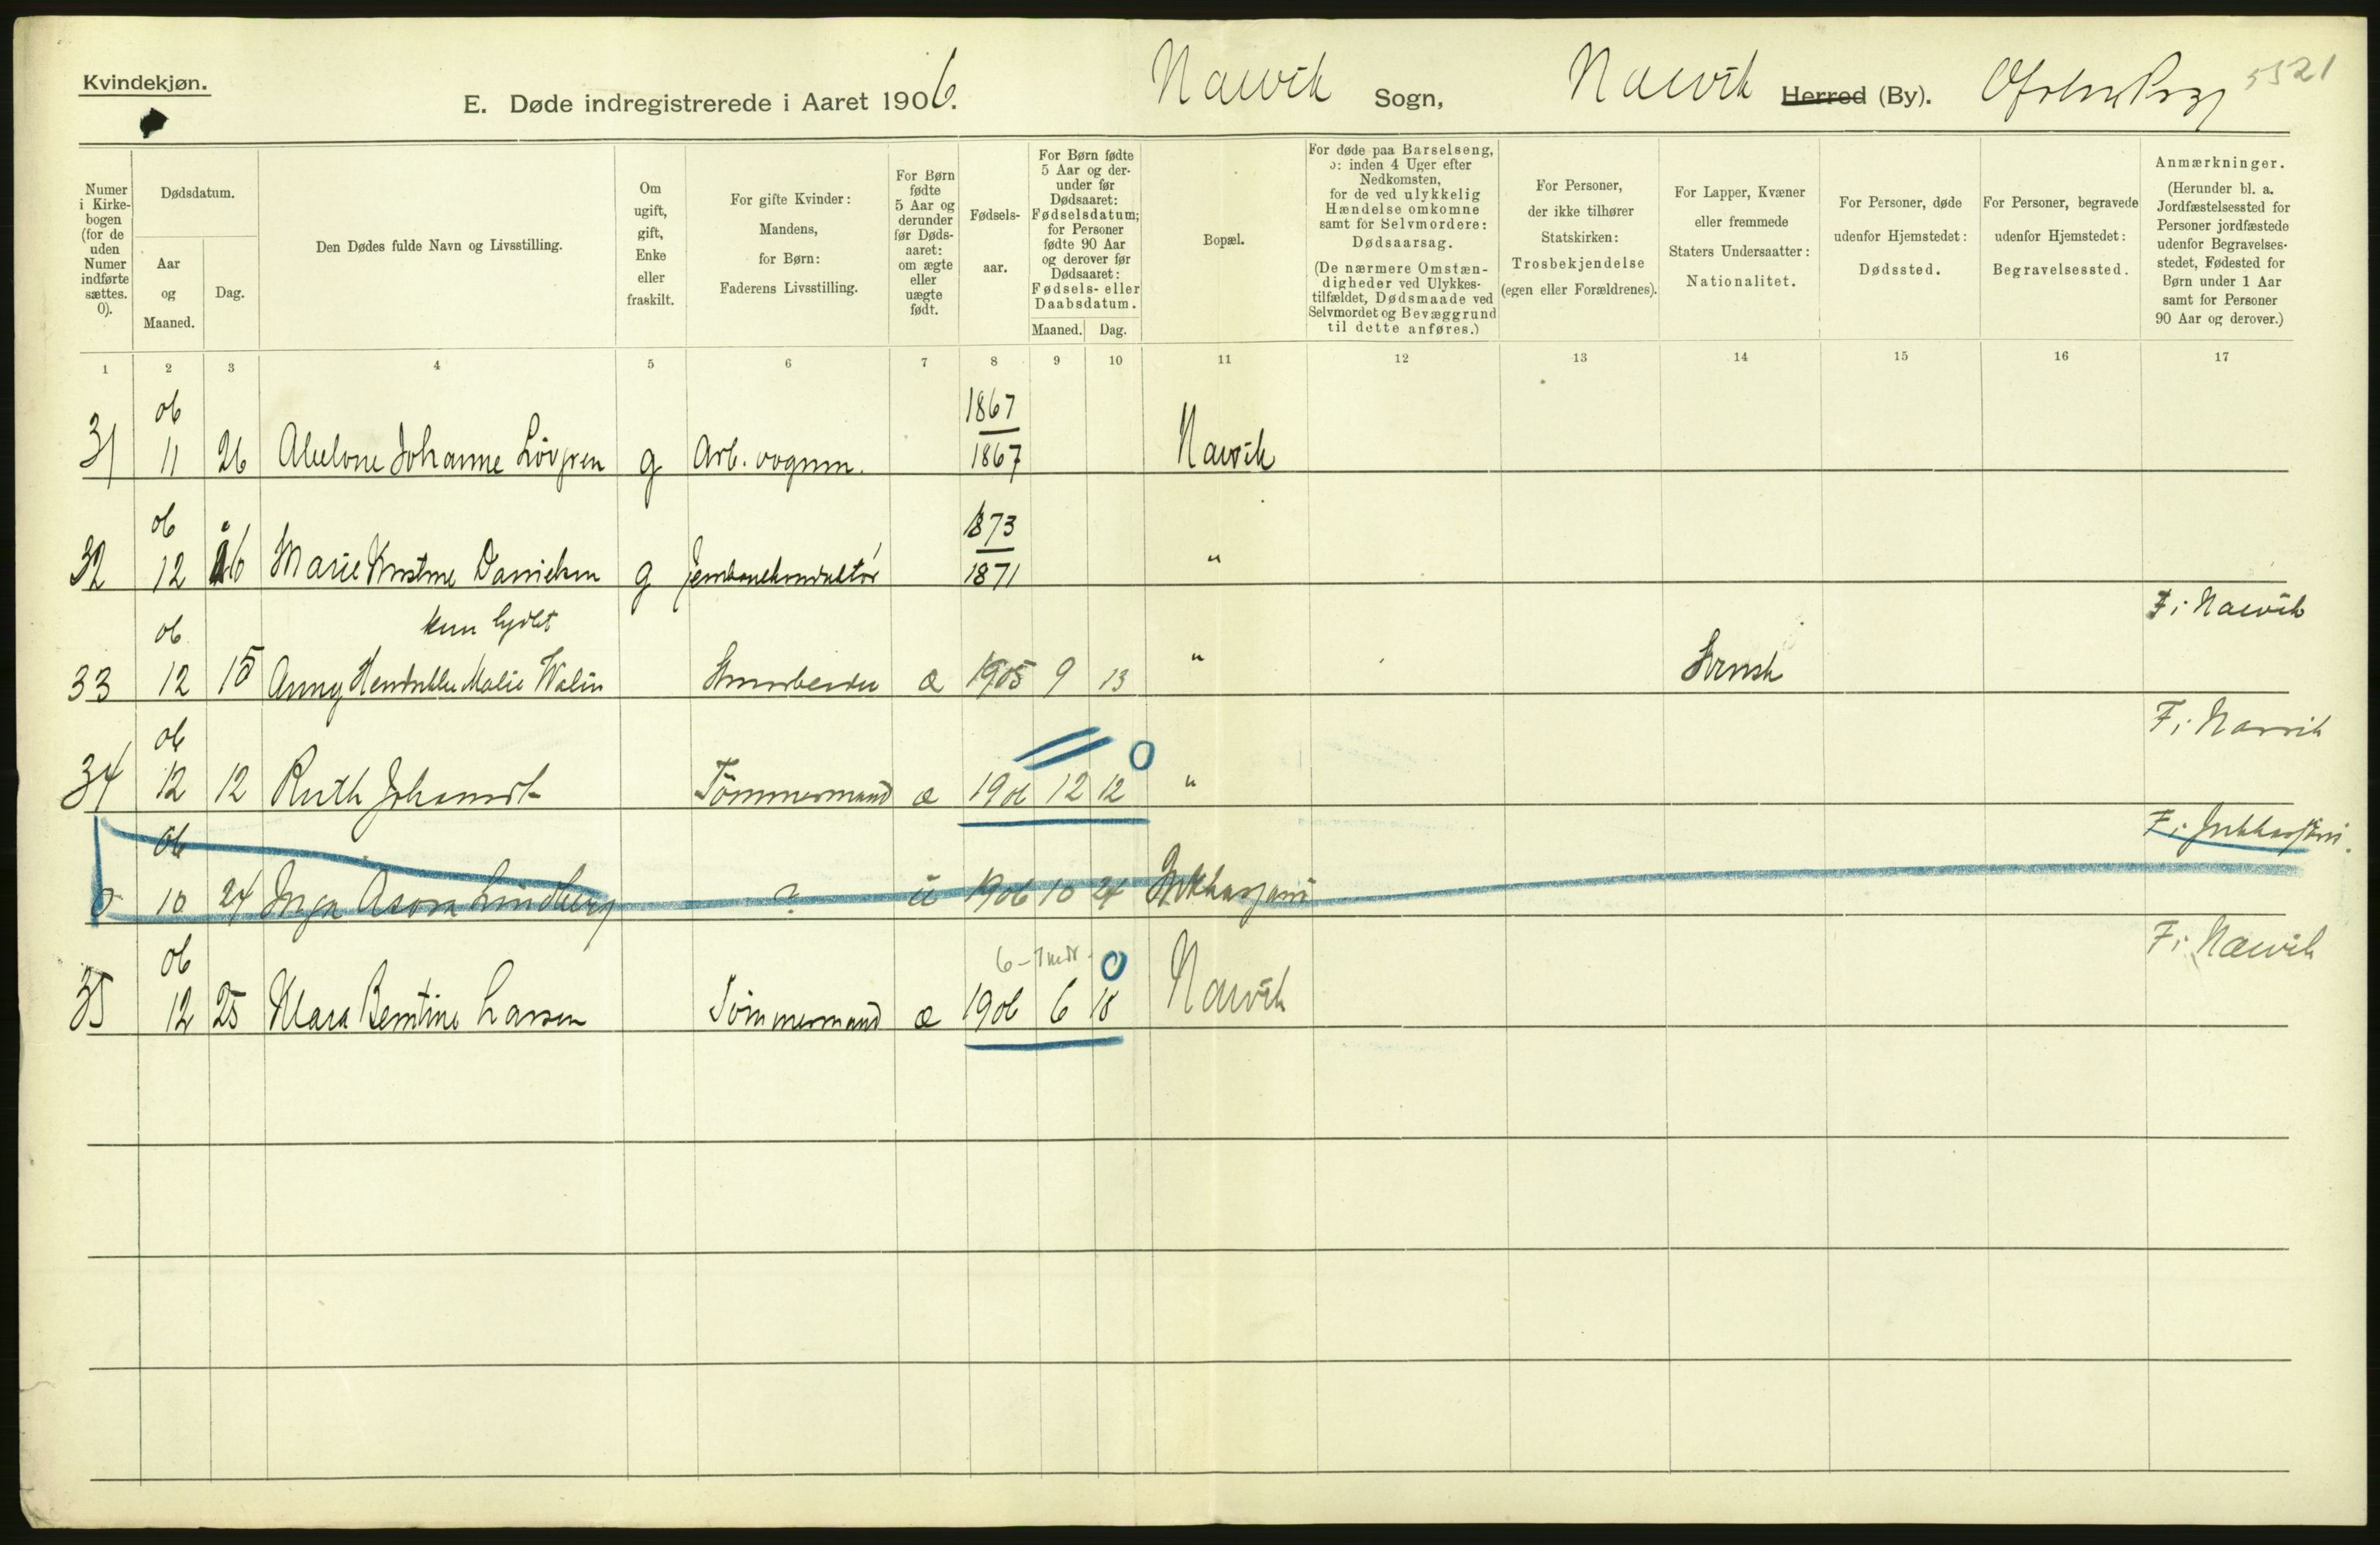 Kvindekjøn.
E. Døde indregistrerede i Aaret 1906.
Narvik Sogn,
Narvik Herred (By).
5521
Numer i Kirkebogen (for de uden Numer indførte sættes. 0).
Dødsdatum.
Aar og Maaned.
Dag.
Den Dødes fulde Navn og Livsstilling.
Om ugift, gift, Enke eller fraskilt.
For gifte Kvinder: Mandens, for Børn: Faderens Livsstilling.
For Børn fødte 5 Aar og derunder før Døds-aaret: om ægte eller uægte født.
Fødsels-aar.
For Børn fødte 5 Aar og der-under før Dødsaaret: Fødselsdatum; for Personer fødte 90 Aar og derover før Dødsaaret: Fødsels- eller Daabsdatum.
Maaned. Dag.
Bopæl.
For døde paa Barselseng, ɔ: inden 4 Uger efter Nedkomsten, for de ved ulykkelig Hændelse omkomne samt for Selvmordere: Dødsaarsag.
(De nærmere Omstæn-digheder ved Ulykkes-tilfældet, Dødsmaade ved Selvmordet og Bevæggrund til dette anføres.)
For Personer, der ikke tilhører Statskirken: Trosbekjendelse (egen eller Forældrenes).
For Lapper, Kvæner eller fremmede Staters Undersaatter: Nationalitet.
For Personer, døde udenfor Hjemstedet: Dødssted.
For Personer, begravede udenfor Hjemstedet: Begravelsessted.
Anmærkninger.
(Herunder bl. a. Jordfæstelsessted for Personer jordfæstede udenfor Begravelses-stedet, Fødested for Børn under 1 Aar samt for Personer 90 Aar og derover.)
1 2 3 4 5 6 7 8 9 10 11 12 13 14 15 16 17
06 1867
31 11 26 Abelone Johanne Lövgren g Arb. vognm. 1867 Narvik
06 1873
32 12 26 Marie Kristine Danielsen g Jernbanekonduktör 1871 "
06 kun lydlt F: Narvik
33 12 15 Anny Malie Walin æ 1905 9 13 " Svensk
06 0 F: Narvik
34 12 12 Ruth Tömmermand æ 1906 12 12 "
06 F: Jukkasjärvi.
0 10 24 Inga Lindberg ? u 1906 10 24 Jukkasjärvi
06 6 - 7 mdr. 0 F: Narvik
35 12 25 Klara Berntine Larsen Tömmermand æ 1906 6 18 Narvik